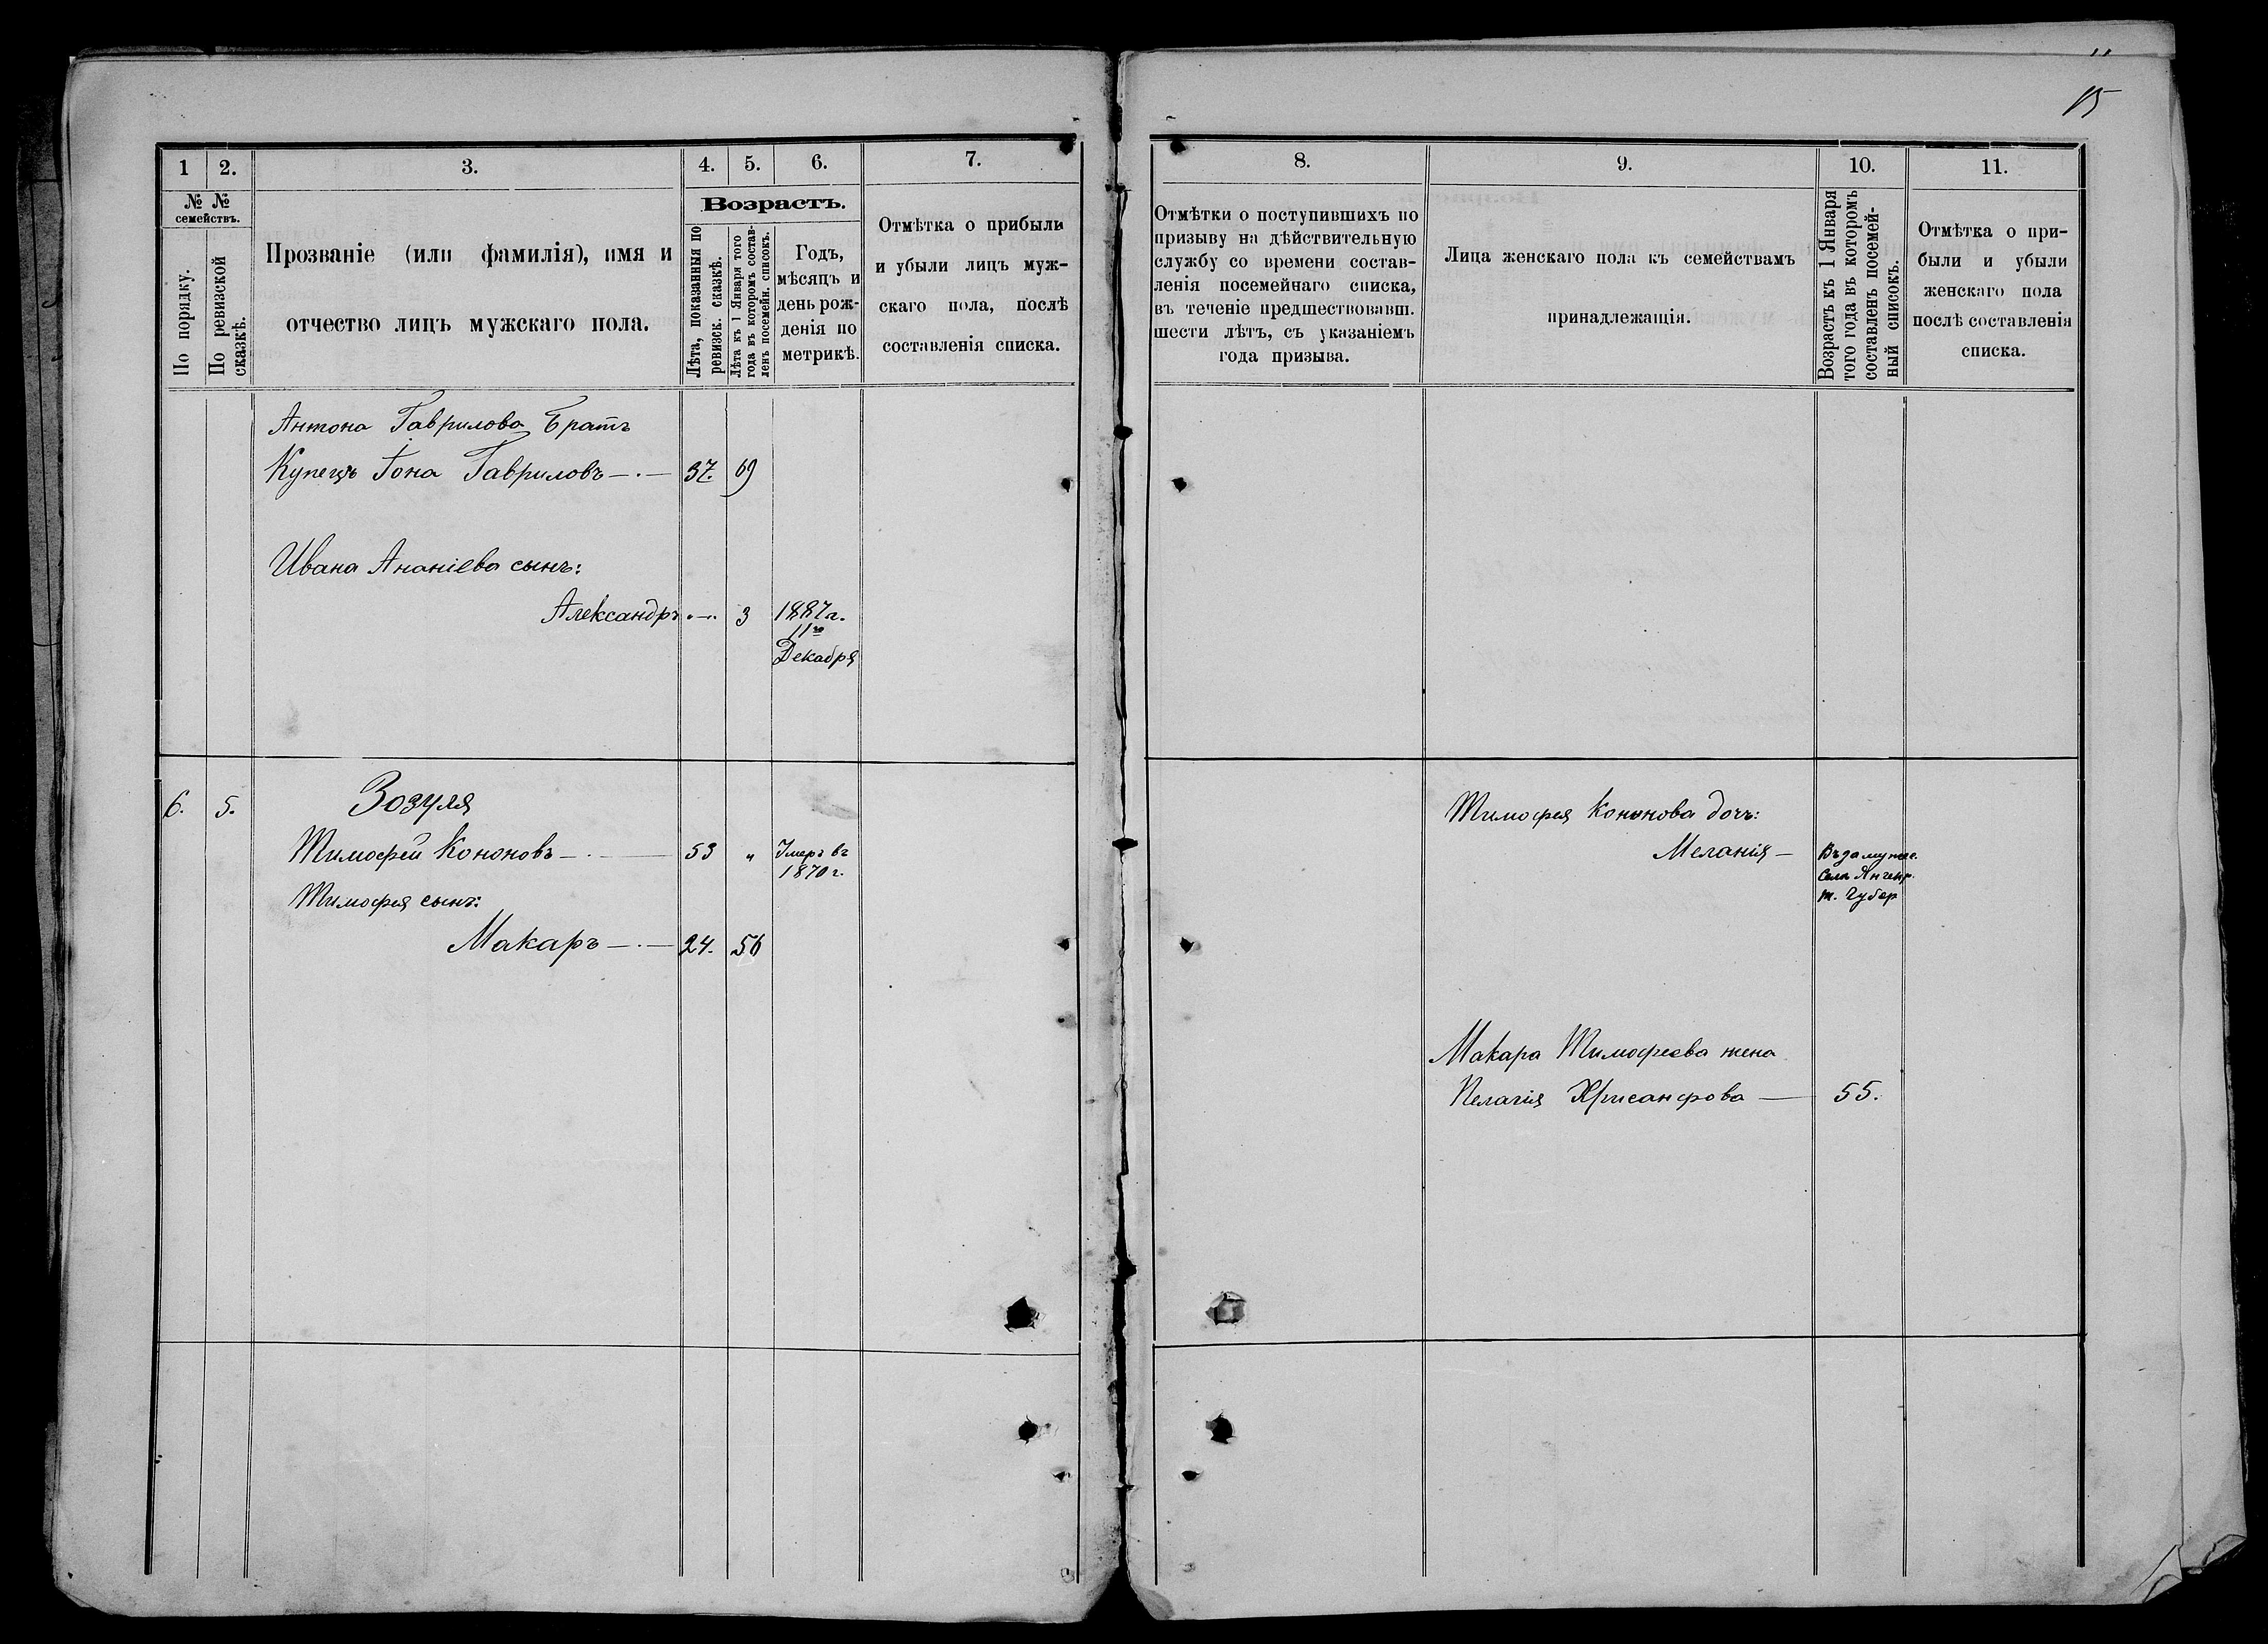 15
1 2. 3. 4. 5. 6. 7.
№ № семействъ.
По порядку.
По ревизской сказкѣ.
Прозваніе (или фамилія), имя и
отчество лицъ мужскаго пола.
Возрастъ.
Лѣта, показанныя по
ревизск. сказкѣ.
Лѣта къ 1 Января того
года въ которомъ состав-
ленъ посемейн. списокъ.
Годъ,
мѣсяцъ и
день рож-
денія по
метрикѣ.
Отмѣтка о прибыли
и убыли лицъ муж-
скаго пола, послѣ
составленія списка.
Антона Гаврилова Братъ
Купецъ Іона Гавриловъ 37. 69
Ивана Ананіева сынъ:
Александръ 3 1887 г.
11го
Декабря
6. 5. Зозуля
Тимофей Кононовъ 53 " Умеръ въ
1870 г.
Тимофея сынъ:
Макаръ 24. 56
8. 9. 10. 11.
Отмѣтки о поступившихъ по
призыву на дѣйствительную
службу со времени состав-
ленія посемейнаго списка,
въ теченіе предшествовавш.
шести лѣтъ, съ указаніемъ
года призыва.
Лица женскаго пола къ семействамъ
принадлежащія.
Возрастъ къ 1 Января
того года въ которомъ
составленъ посемей-
ный списокъ.
Отмѣтка о при-
были и убыли
женскаго пола
послѣ составленія
списка.
Тимофея Кононова дочь:
Меланія Въ замуже.
Села
т. Губер
Макара Тимофеева жена
Пелагія Хрисанфова 55.